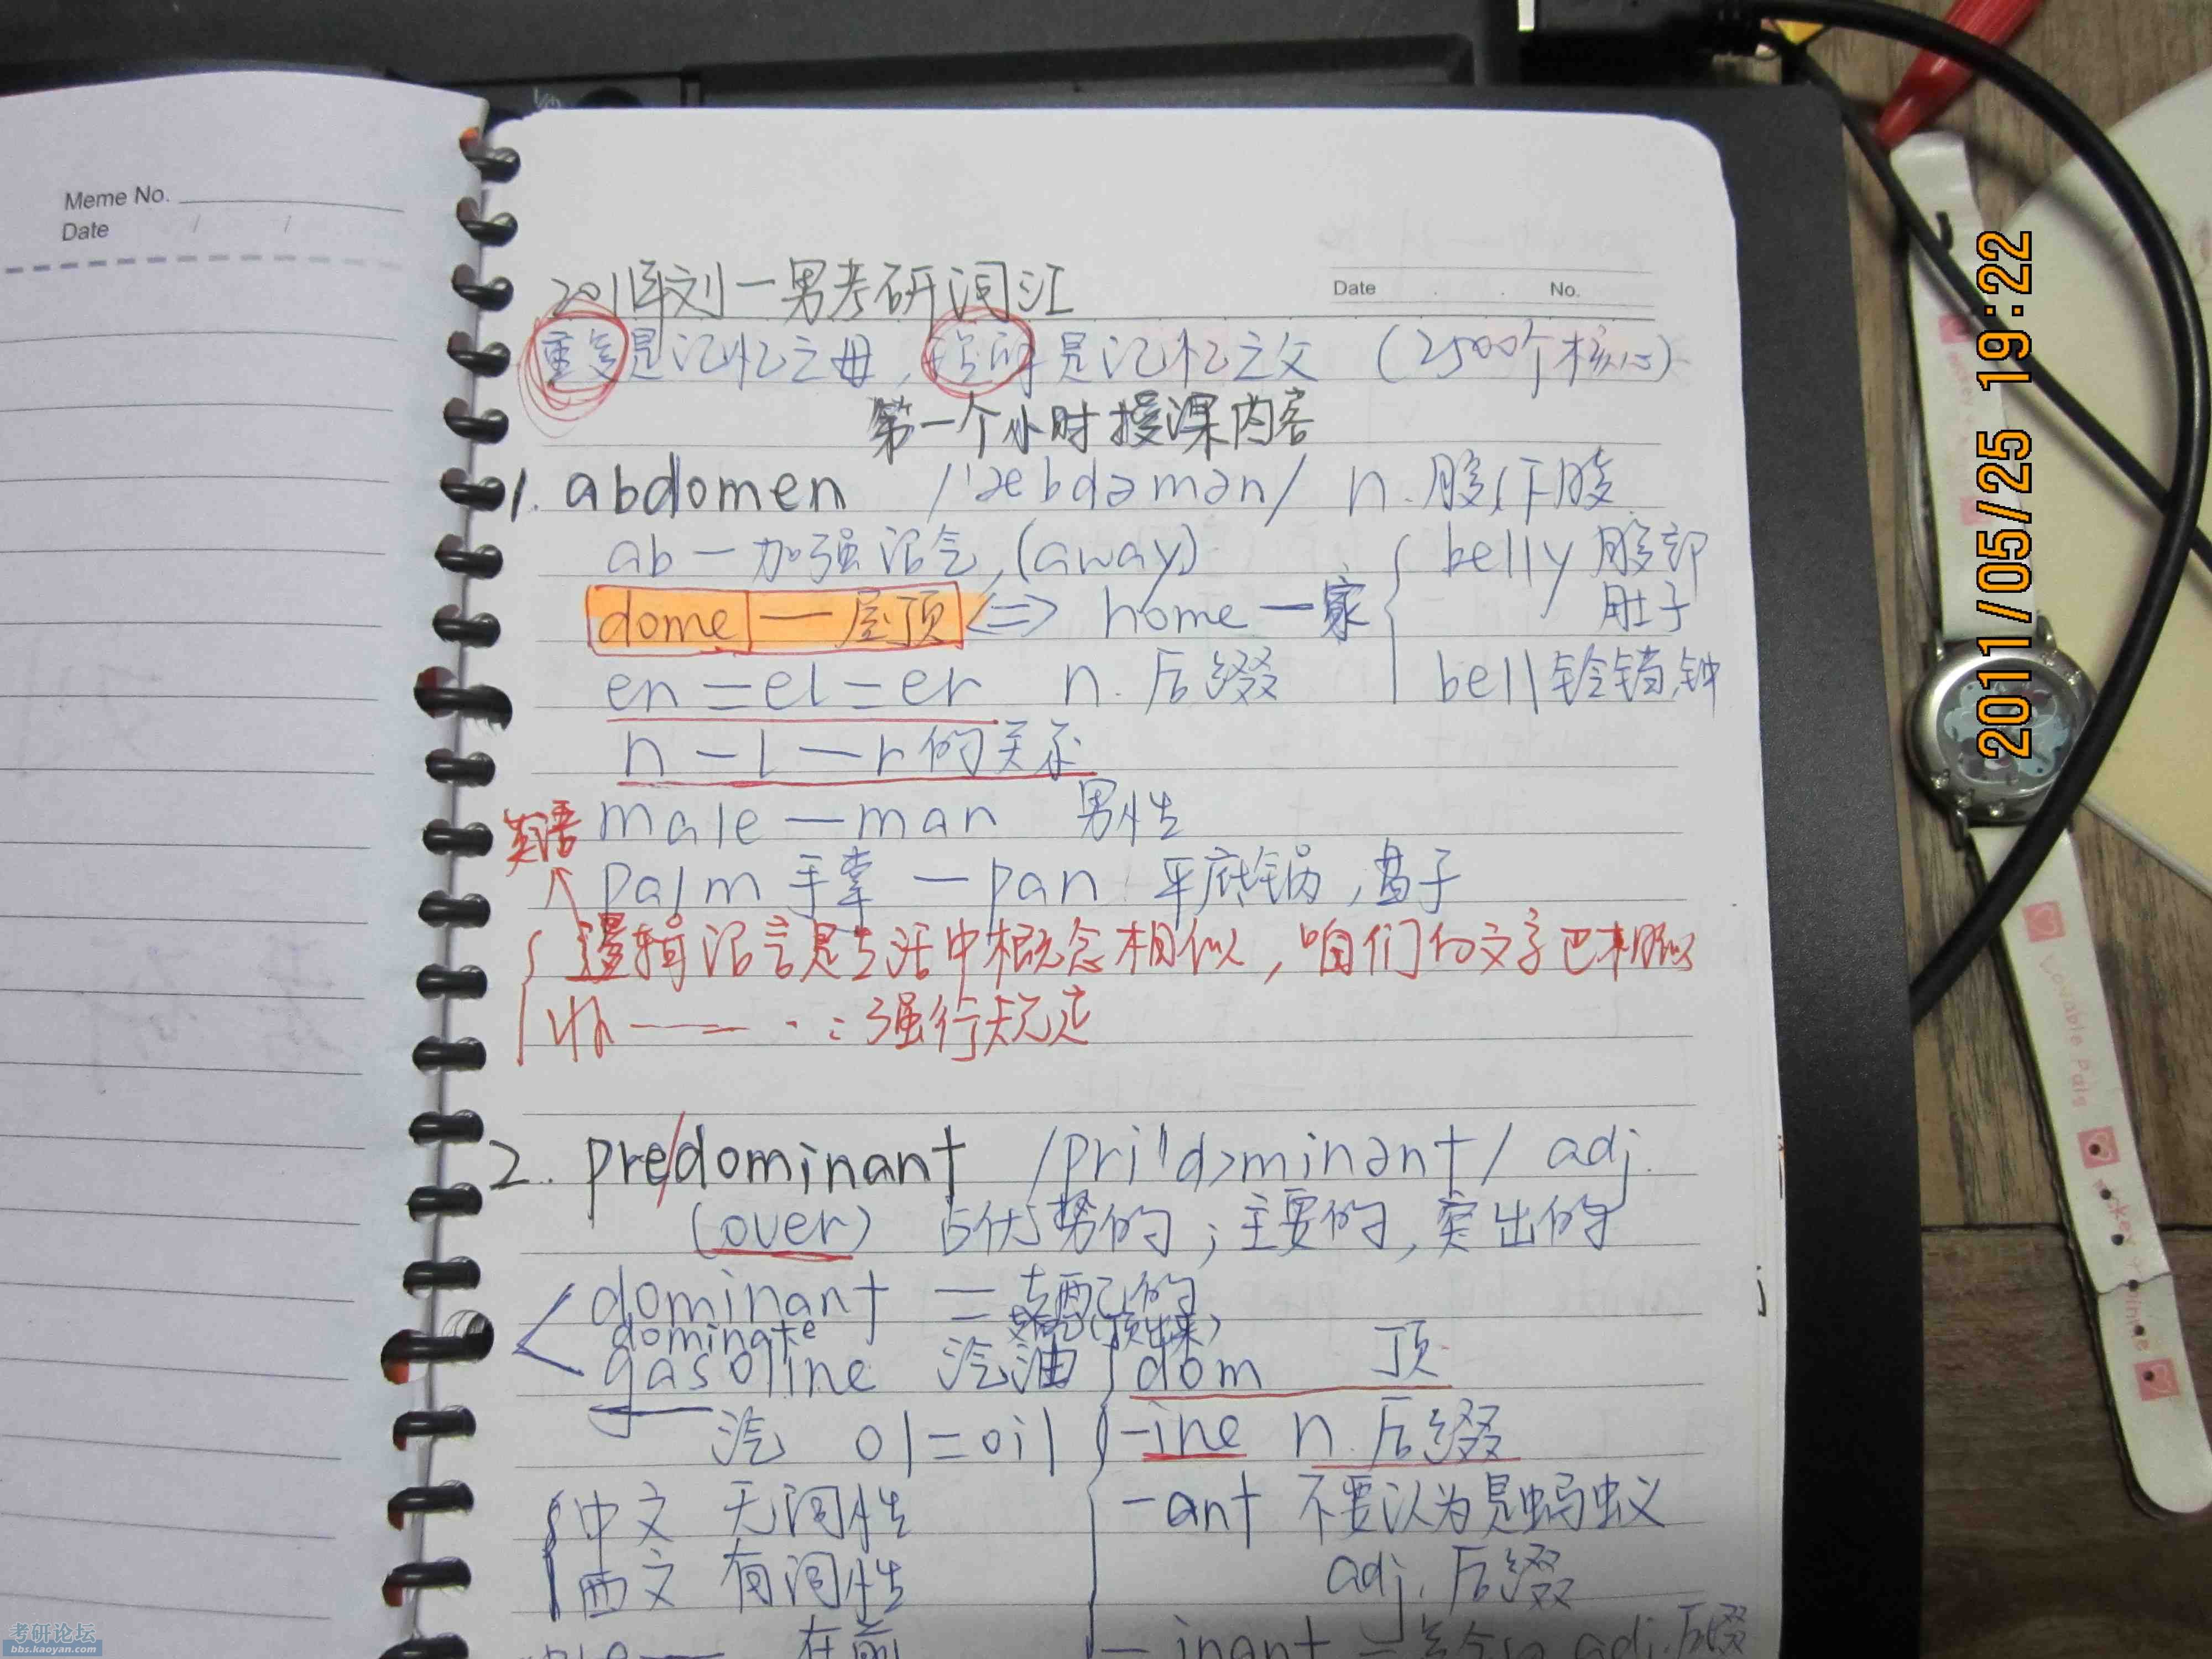 Meme No.
Date / /
Date . . No.
2011年刘一男考研词汇
重复是记忆之母, 是记忆之父 (2500个核心)
第一个小时授课内容
1. abdomen /'æbdəmən/ n. 腹,下腹
ab — 加强语气,(away)
dome — 屋顶 <=> home — 家
en = el = er n. 后缀
belly 腹部
肚子
bell 铃铛,钟
n — l — r 的关系
male — man 男性
英语
palm 手掌 — pan 平底锅,盘子
逻辑语言是生活中概念相似,咱们的文字也相似
强行规定
2. pre/dominant /pri'dɔminənt/ adj.
(over) 占优势的;主要的,突出的
dominant = 支配的
dominate 支配(顶出来)
gasoline 汽油
汽 ol=oil
dom 顶
-ine n. 后缀
-ant 不要认为是蚂蚁
adj. 后缀
中文 无词性
西文 有词性
在前
-inant = adj.后缀
2011/05/25 19:22
Lovable Pals
考研论坛
bbs.kaoyan.com